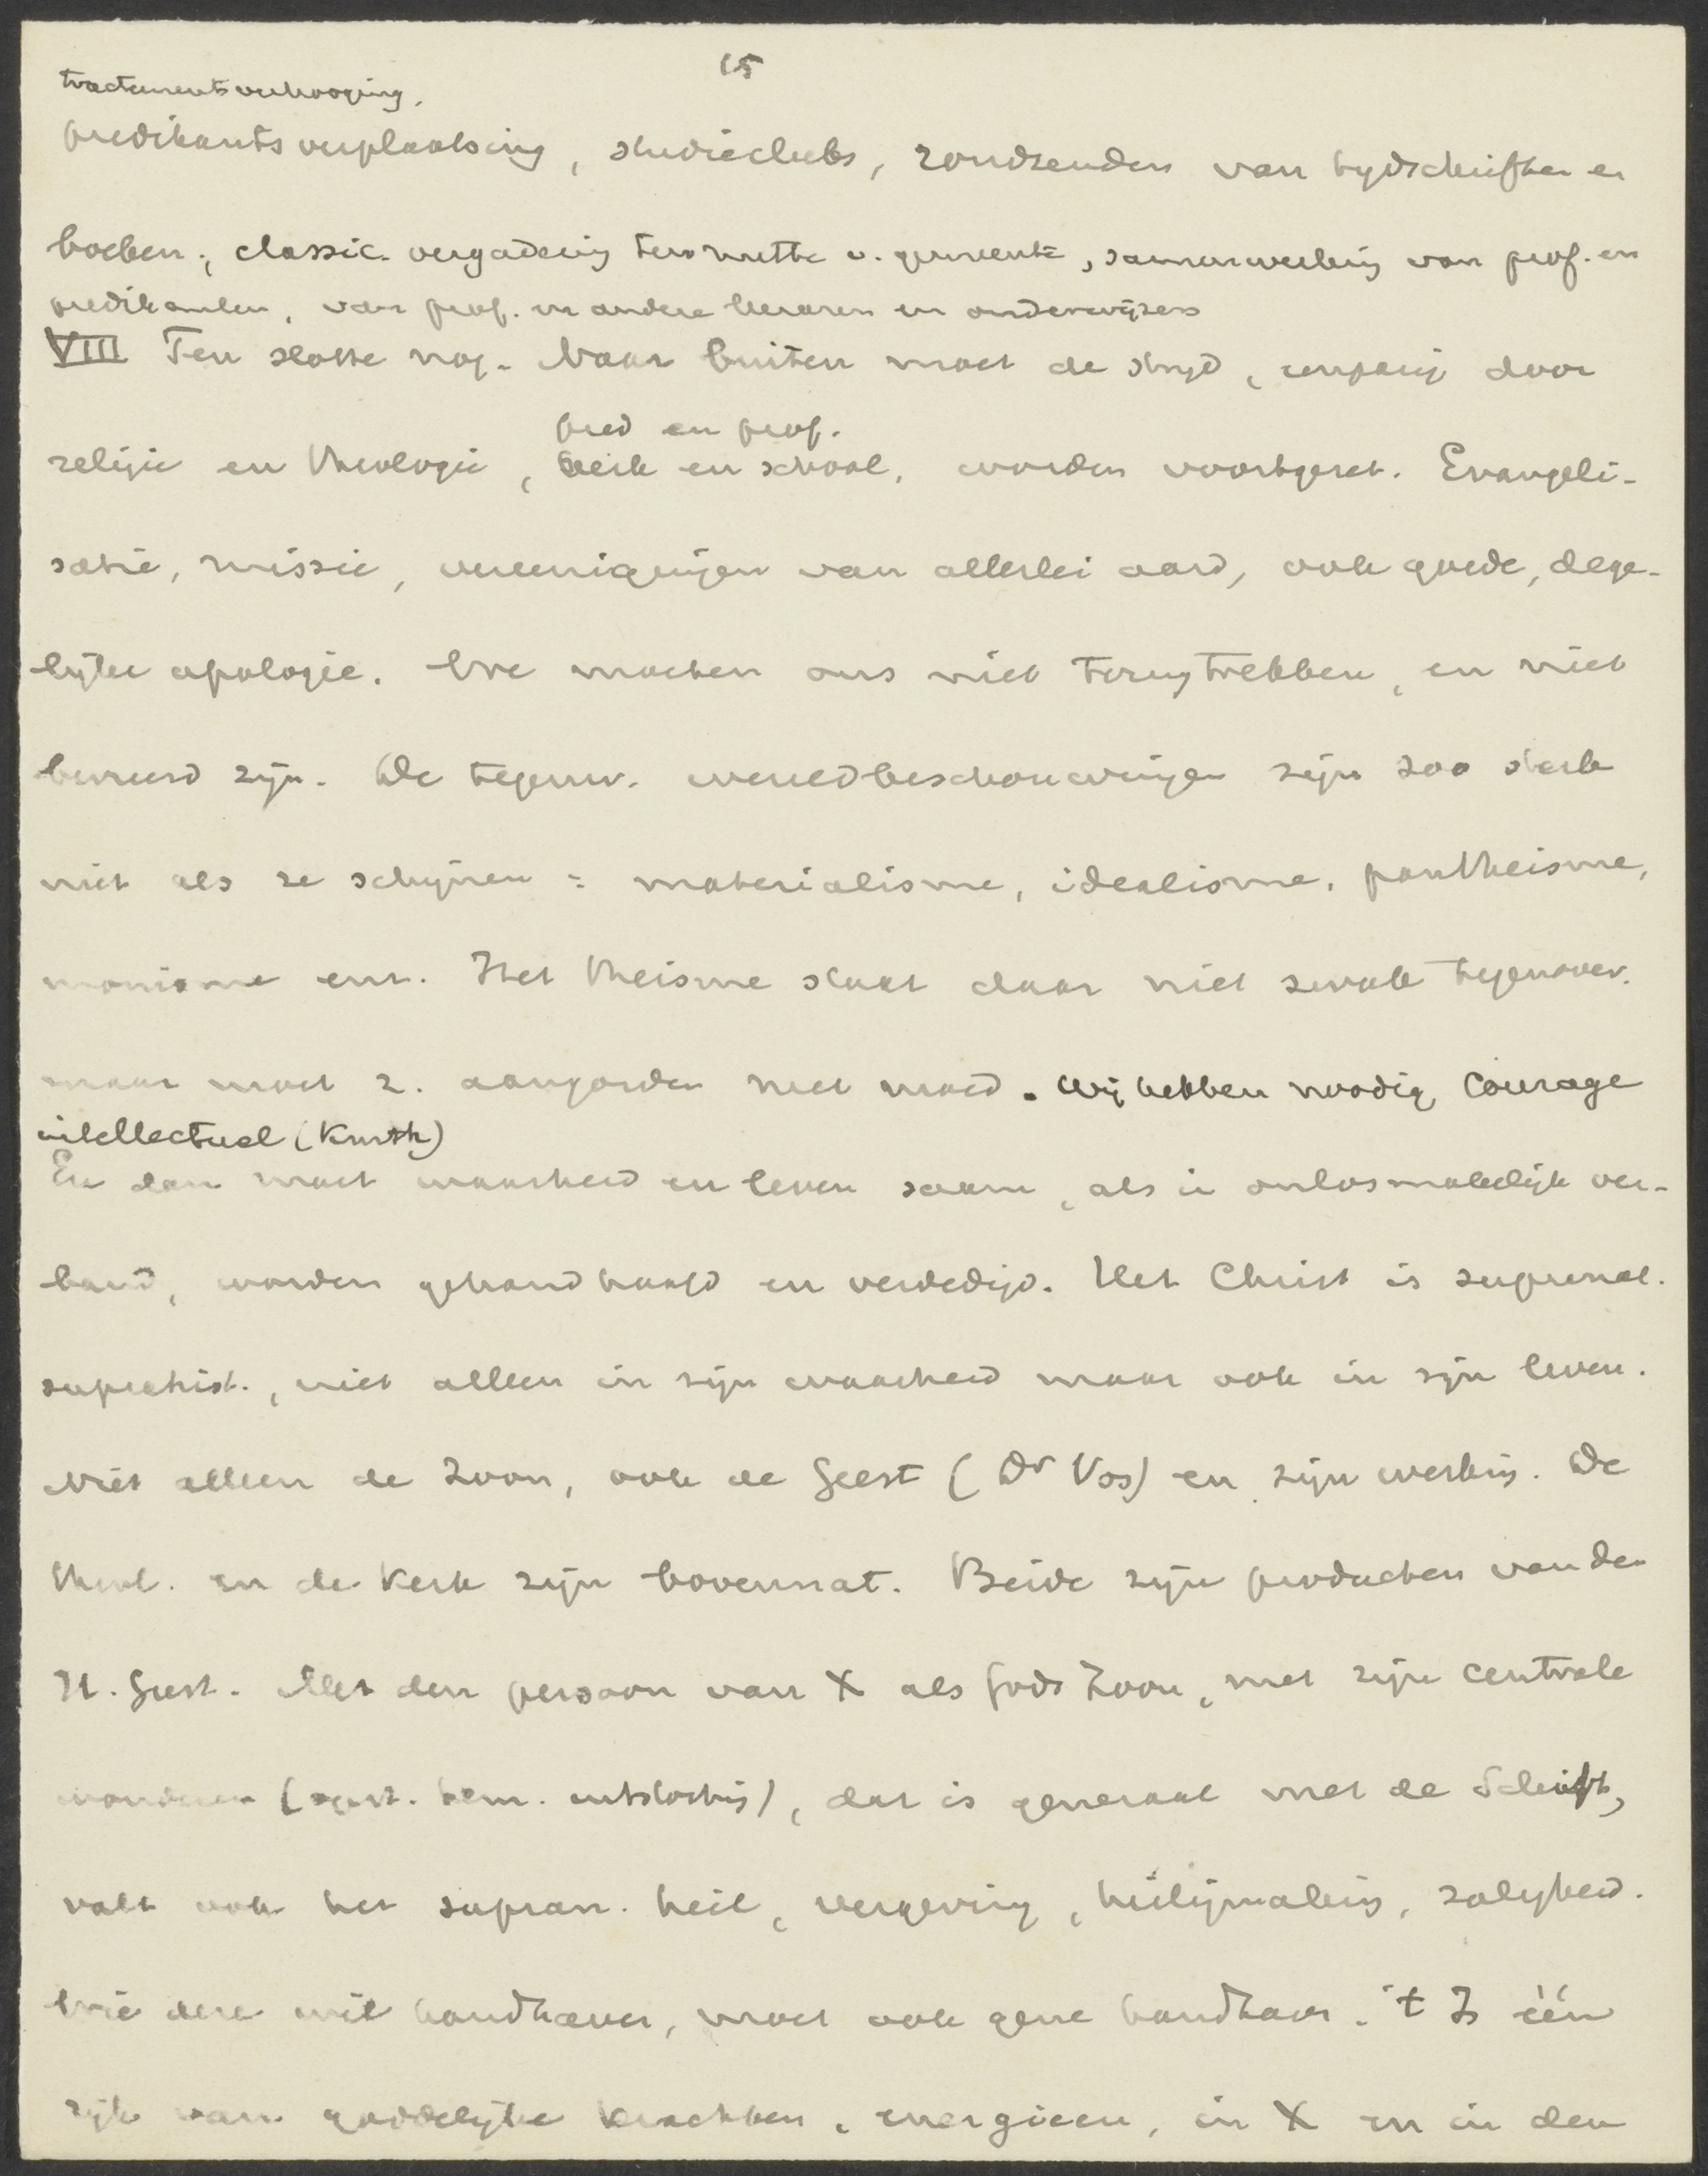 15
tractementsverhooging,
predikantsverplaatsing, studieclubs, rondzenden van tydschriften en
boeken, classic. vergadering ten nutte v. gemeente, samenwerking van prof. en
predikanten, van prof. en andere leeraren en onderwijzers
VIII Ten slotte nog. Naar buiten moet de stryd, eenparig door
pred en prof.
religie en theologie, kerk en school, worden voortgezet. Evangeli-
satie, missie, vereenigingen van allerlei aard, ook goede, dege-
lijke apologie. We moeten ons niet terugtrekken, en niet
bevreesd zijn. De tegenw. wereldbeschouwingen zijn zoo sterk
niet als ze schijnen = materialisme, idealisme, pantheisme,
monisme enz. Het theisme staat daar niet zwak tegenover.
maar moet z. aangorden met moed. Wij hebben noodig courage
intellectuel (Kurth)
En dan moet waarheid en leven saam, als in onlosmakelijk ver-
band, worden gehandhaafd en verdedigd. Het Christ is supernat.
superhist., niet alleen in zijn waarheid maar ook in zijn leven.
Niet alleen de Zoon, ook de Geest (Dr Vos) en zijn werking. De
theol. en de Kerk zijn bovennat. Beide zijn producten van den
H. Geest. Met den persoon van X als Gods Zoon, met zijn centrale
wonderen (opst. hem. ), dat is generaal met de Schrift,
valt ook het supran. heil, vergeving, heiligmaking, zaligheid.
Wie deze wil handhaven, moet ook gene handhav. 't Is één
rijk van goddelijke krachten, energieen, in X en in den